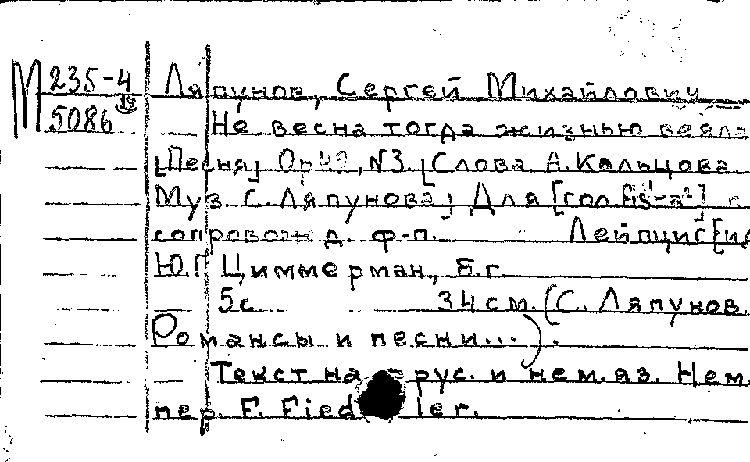 М 235-4 Ляпунов, Сергей Михайлович
5086 Не весна тогда жизнью веяла
[Песня] Ор. 42, N3. [Слова А. Кальцова
Муз. С. Ляпунова] Для [гол.
сопровожд. ф-п. Лейпциг [и
Ю.Г. Циммерман, Б.г.
5с. 34 см. (С. Ляпунов.
Романсы и песни...).
Текст на рус. и нем. яз. Нем.
пер. F. Fiedler.